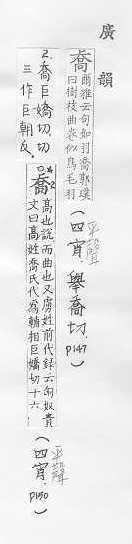 廣韻
喬
爾雅云句如羽喬郭璞
曰樹枝曲卷似鳥毛羽
(四宵 舉喬切. p147)
平聲
2.喬巨嬌切切
三作巨朝反.
喬
高也說而曲也又虜姓前代錄云匈奴貴
文曰高姓喬氏代爲輔相巨嬌切十六
(四宵. p150)
平聲